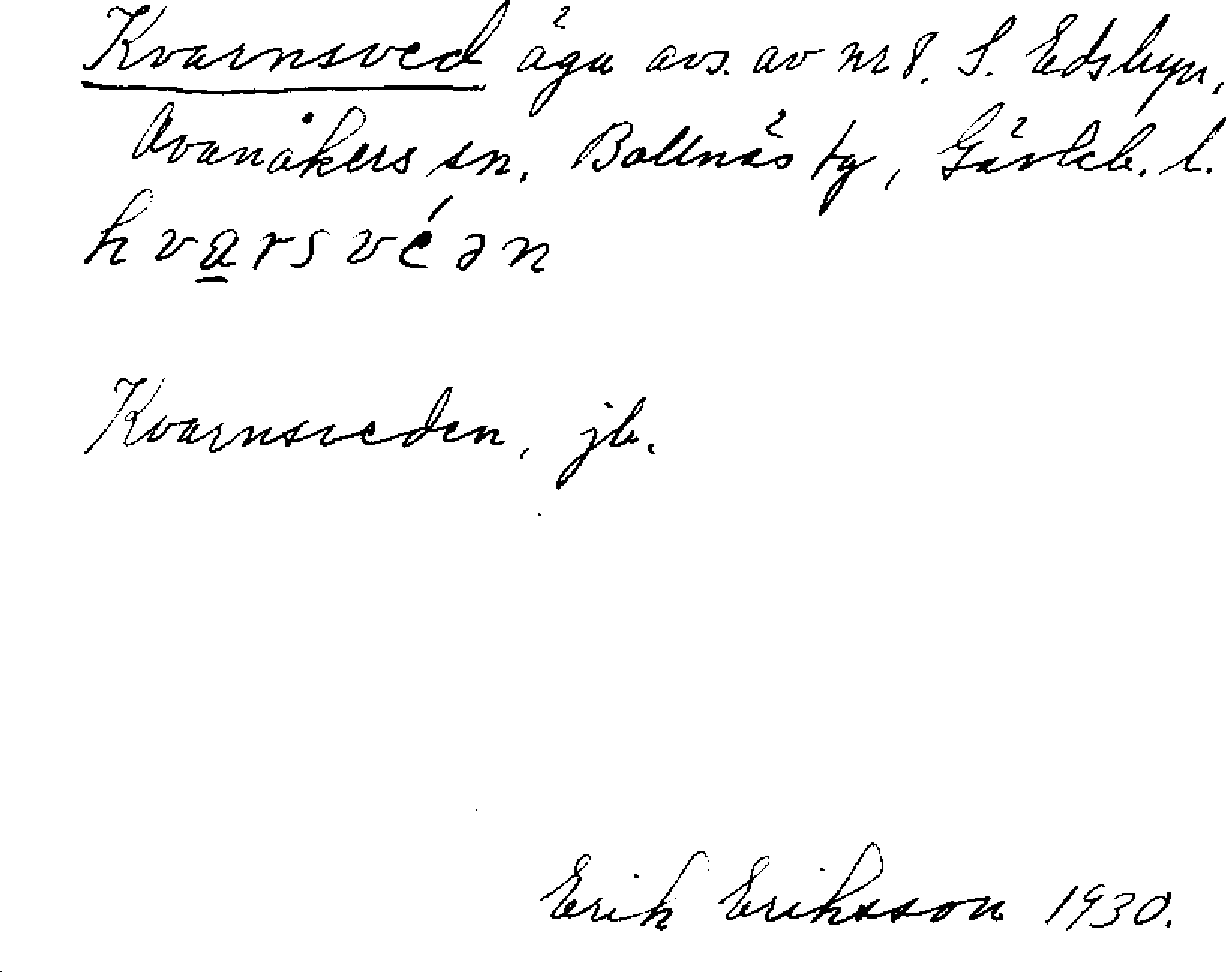 Kvarnsved äga avs. av nr 8. S. Edsbyn,
Ovanåkers sn. Bollnäs tg, Gävleb. l.
kvarsvéən
Kvarnsveden, jb.
Erik Eriksson 1930.